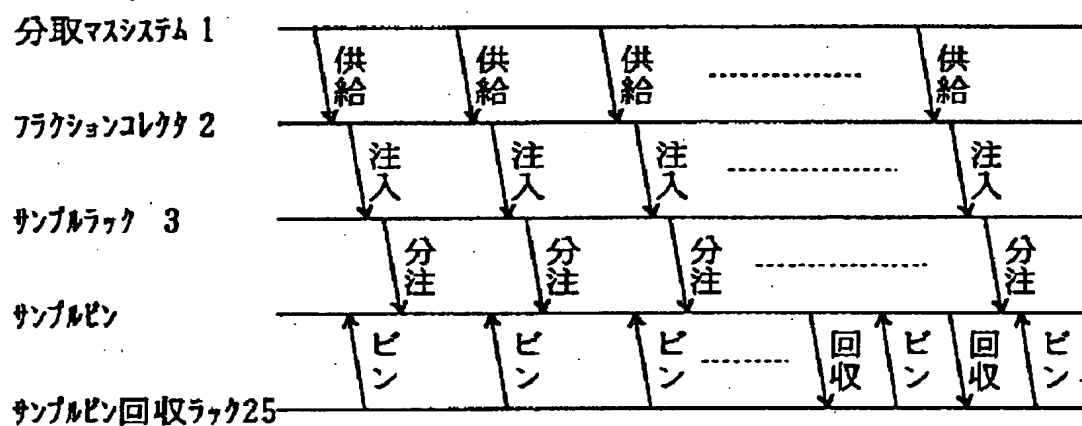 分取マスシステム 1
供給 供給 供給 供給
フラクションコレクタ 2
注入 注入 注入 注入
サンプルラック 3
分注 分注 分注 分注
サンプルビン
ビン ビン ビン 回収 ビン 回収 ビン
サンプルビン回収ラック25